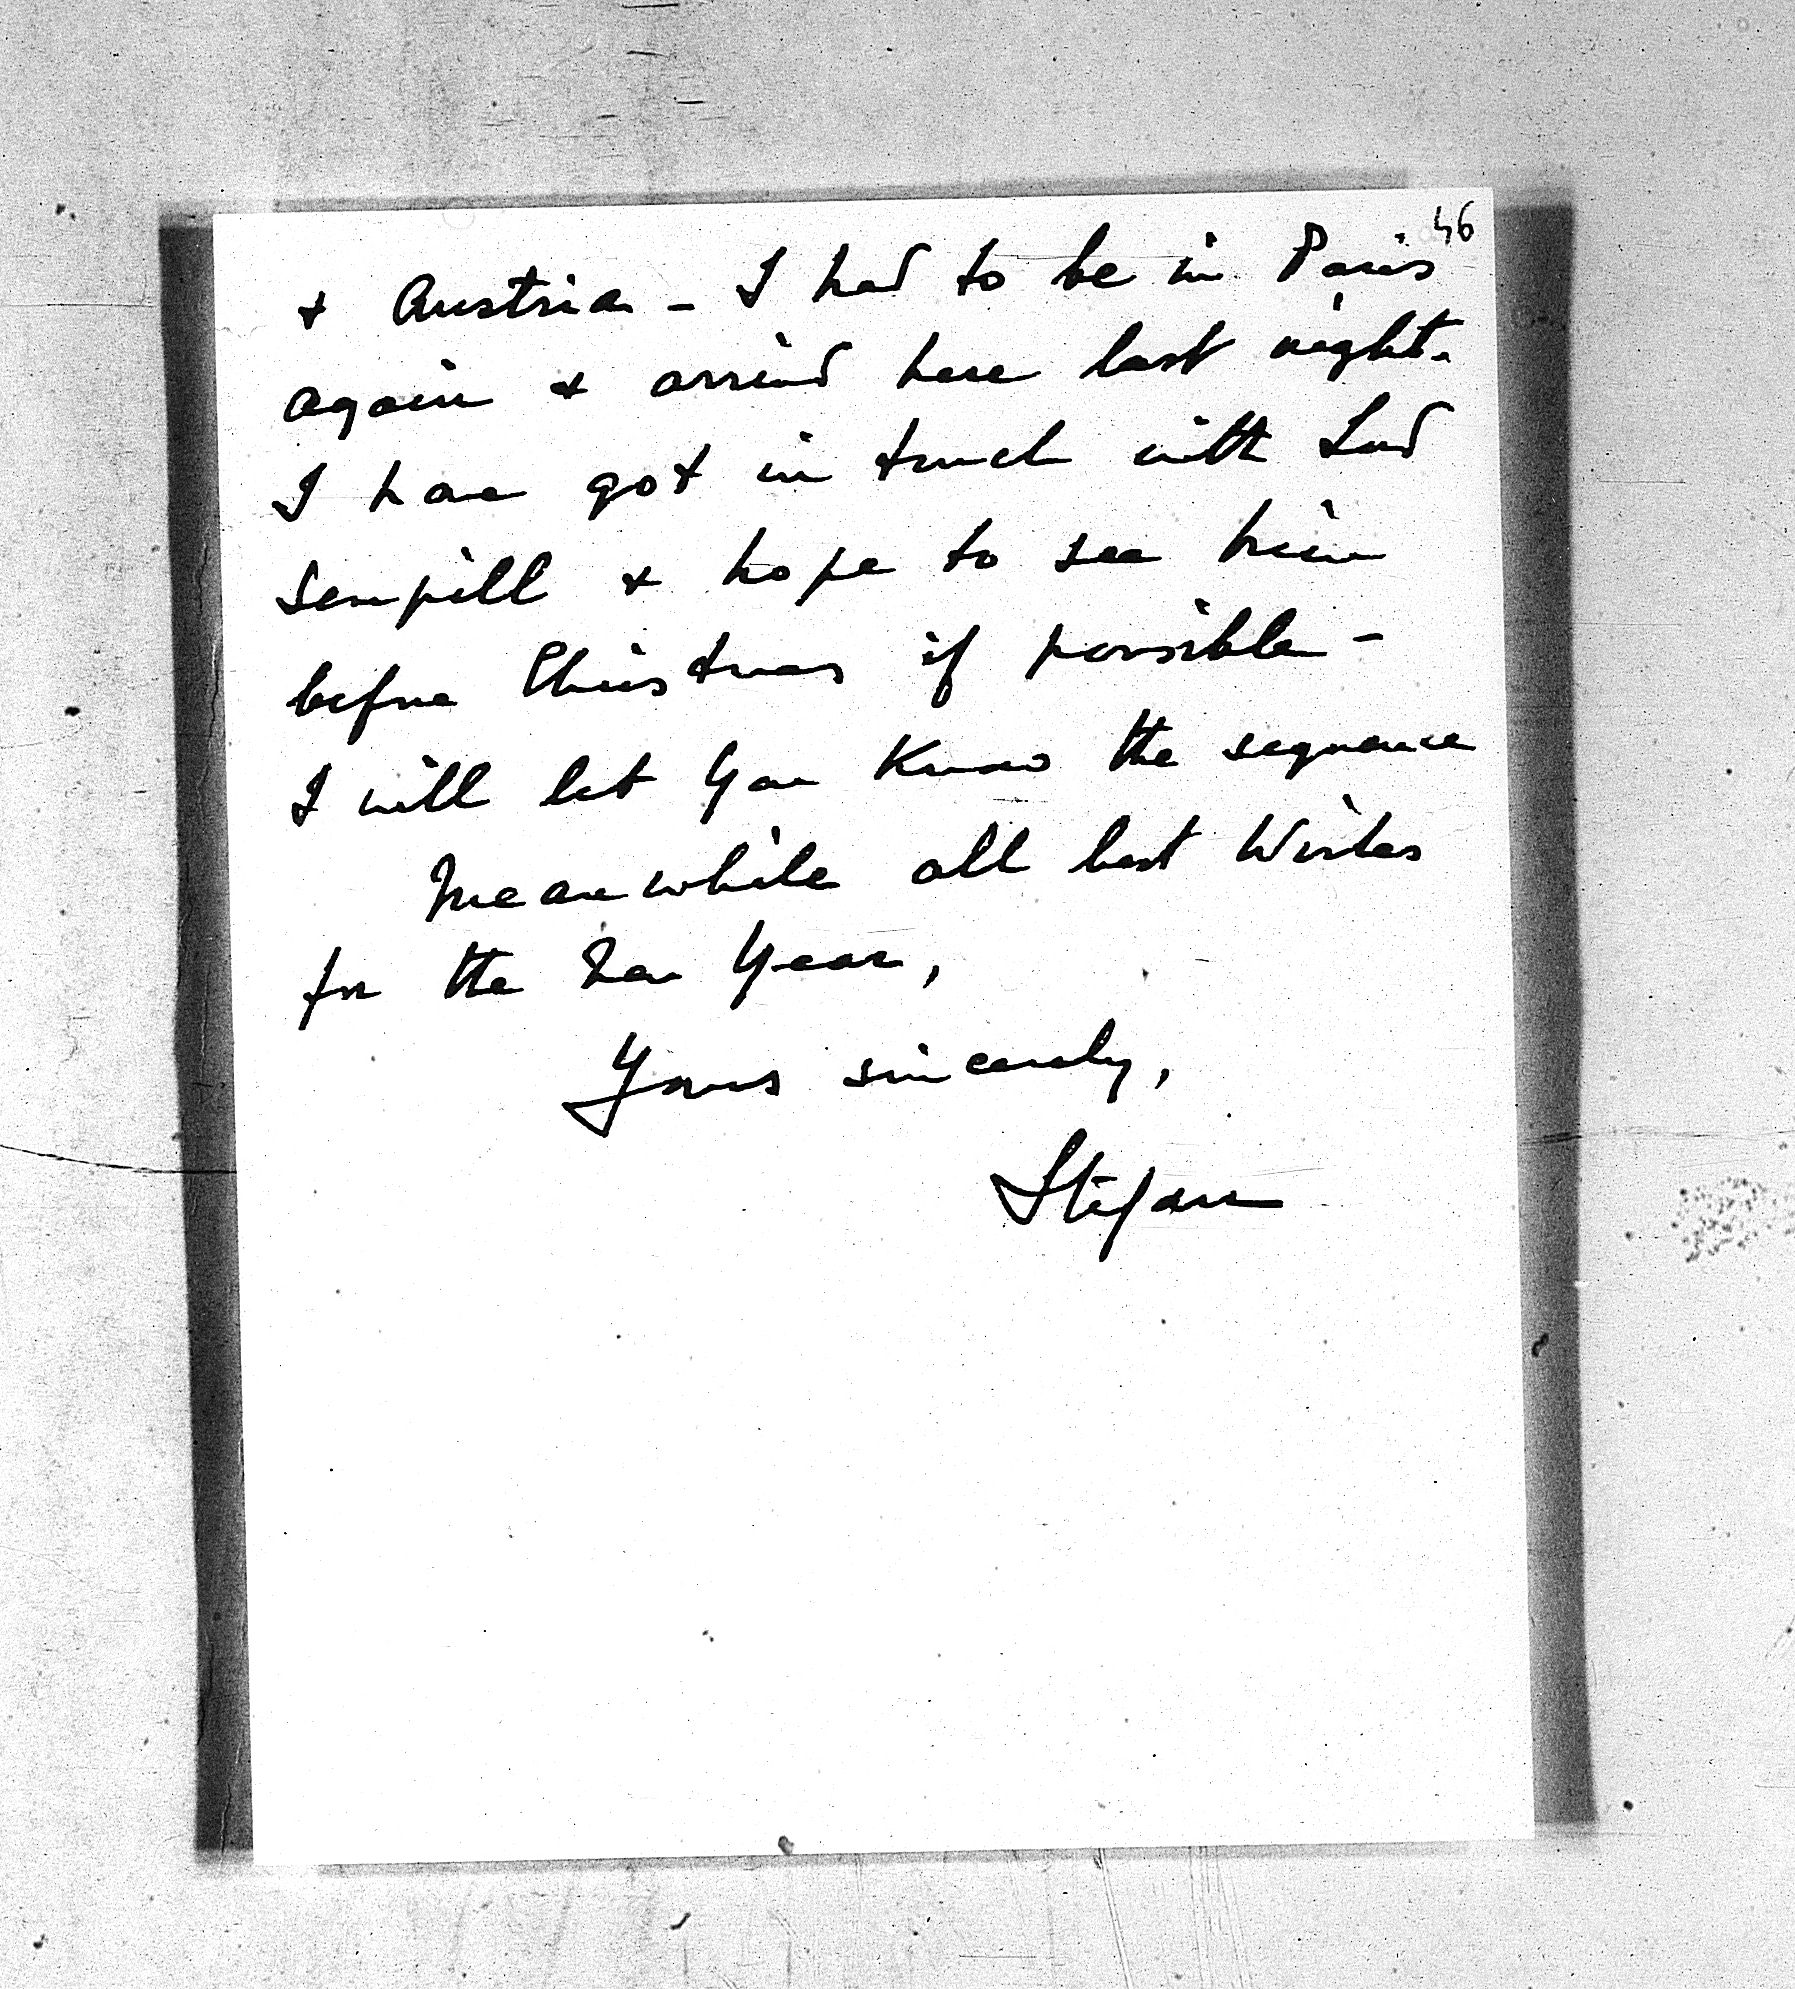 46
& Austria - I had to be in Paris
again & arrived here last night.
I have got in touch with Lord
Sempill & hope to see him
before Christmas if possible -
I will let you know the sequence
Meanwhile all best Wishes
for the New Year,
Yours sincerely,
Stefan